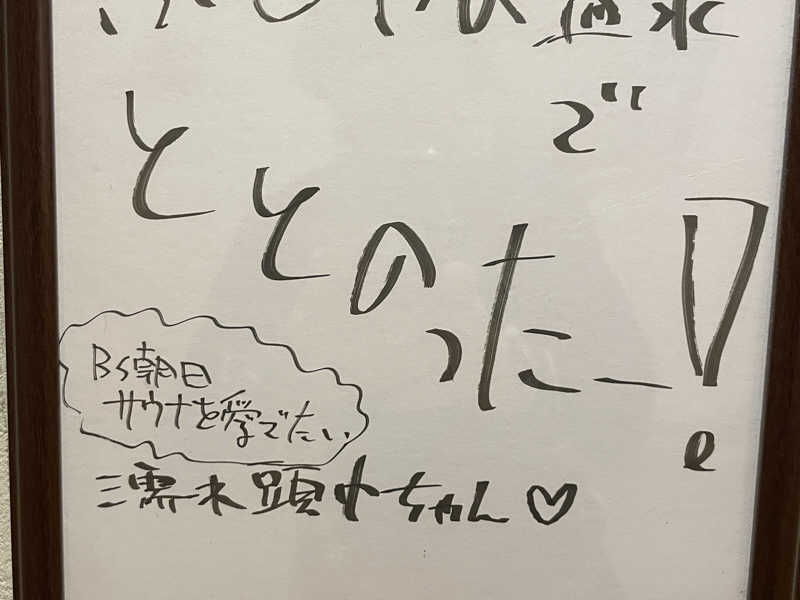 水
で
ととのったー!
BS朝日
サウナを愛でたい
濡れ頭巾ちゃん♡